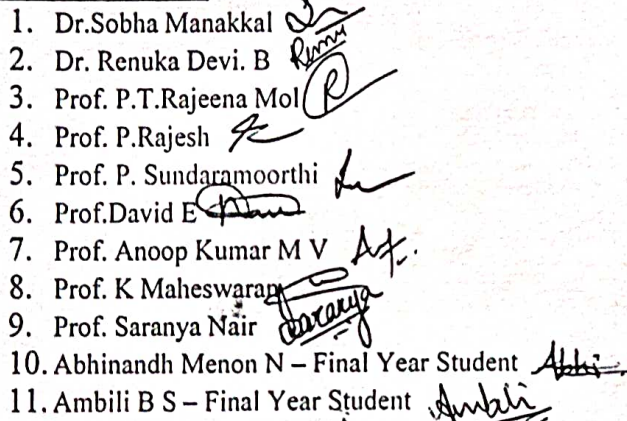 1. Dr.Sobha Manakkal
2. Dr. Renuka Devi. B Renu
3. Prof. P.T.Rajeena Mol R
4. Prof. P.Rajesh
5. Prof. P. Sundaramoorthi
6. Prof.David E
7. Prof. Anoop Kumar M V
8. Prof. K Maheswaran
9. Prof. Saranya Nair Saranya
10. Abhinandh Menon N – Final Year Student Abhi
11. Ambili B S – Final Year Student Ambili